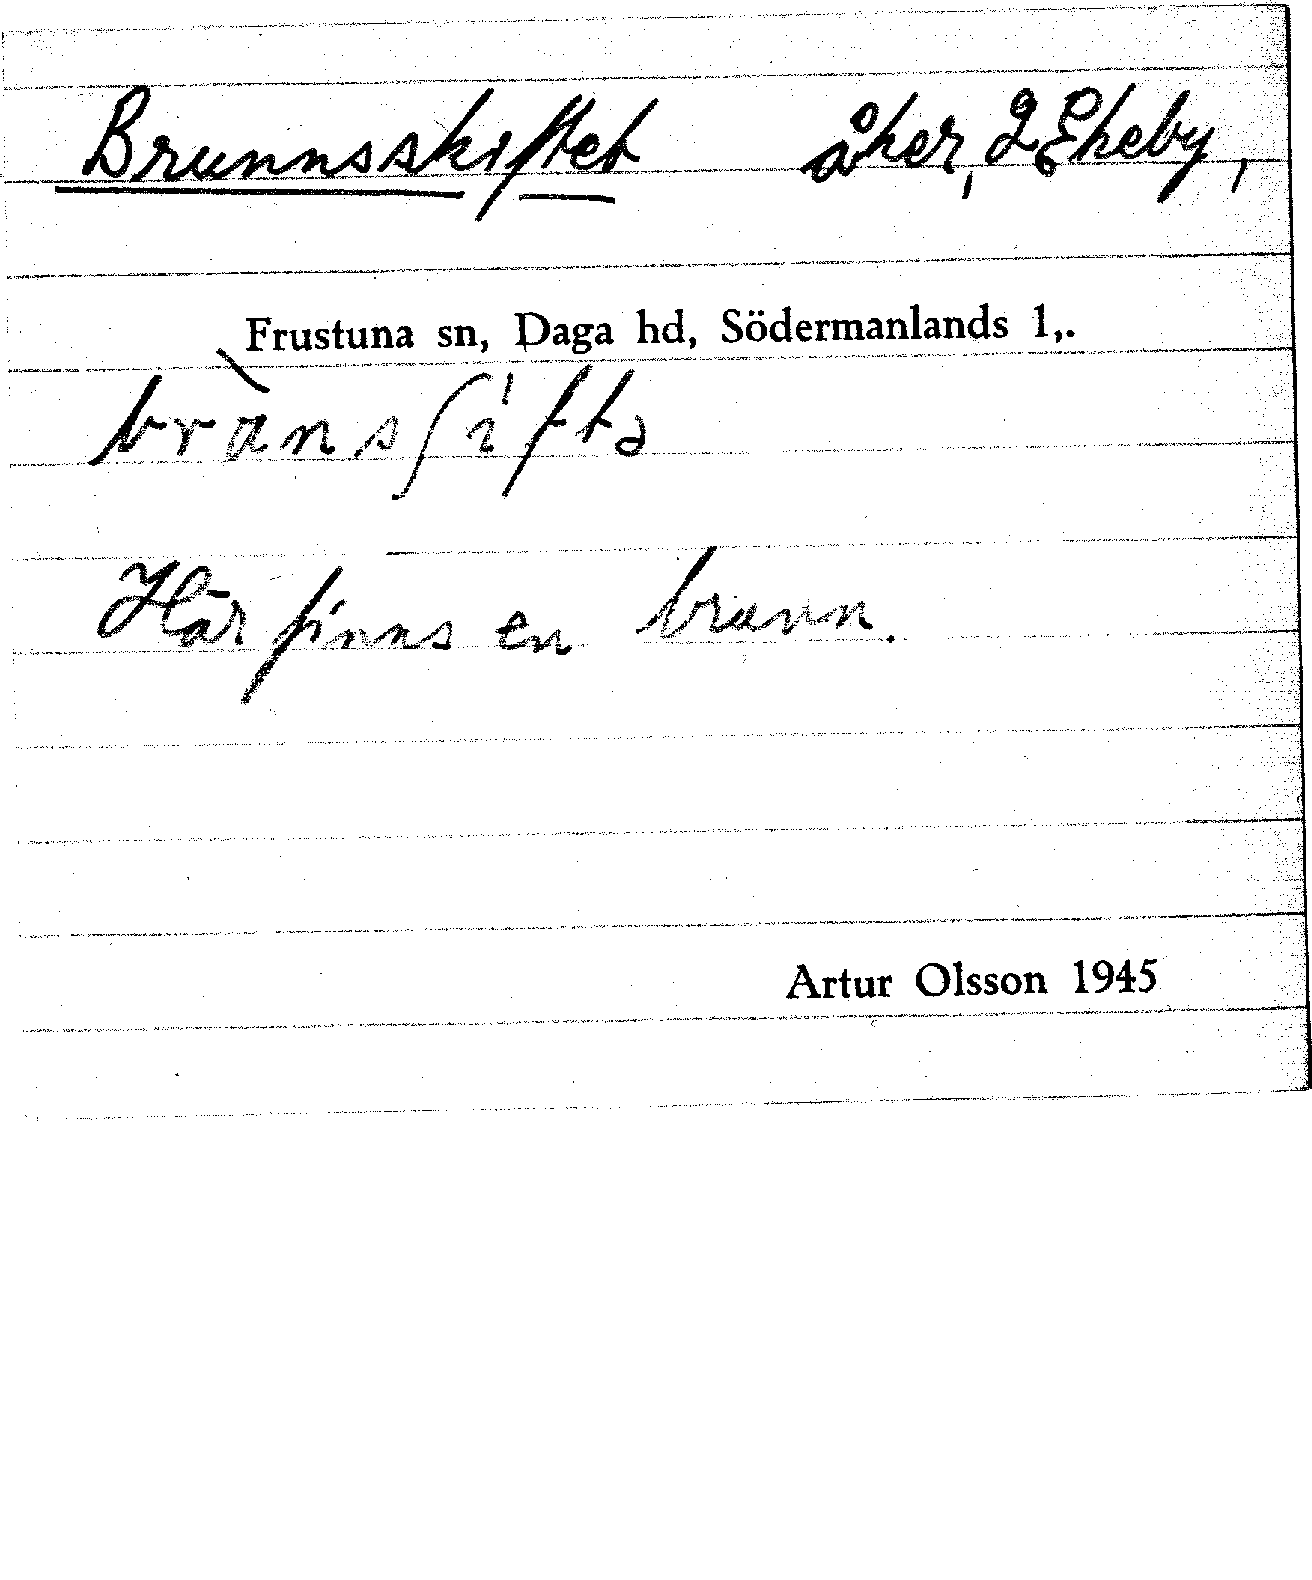 Brunnsskiftet åker, 2 Ekeby,
Frustuna sn, Daga hd, Södermanlands l,.
brànsʃiftə
Här finns en brunn.
Artur Olsson 1945